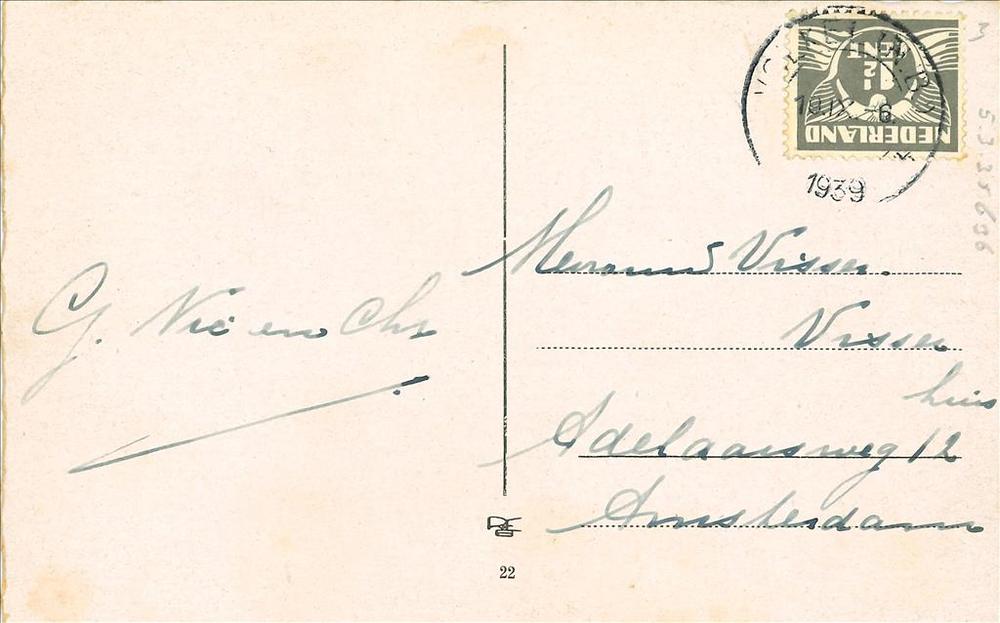 NEDERLAND
1½
CENT
VOLKEL (N.B)
10.IX.-6.
1939
5335606
G. Nic en Chr
Visser.
Visser
huis
Adelaarsweg 12
Amsterdam
22